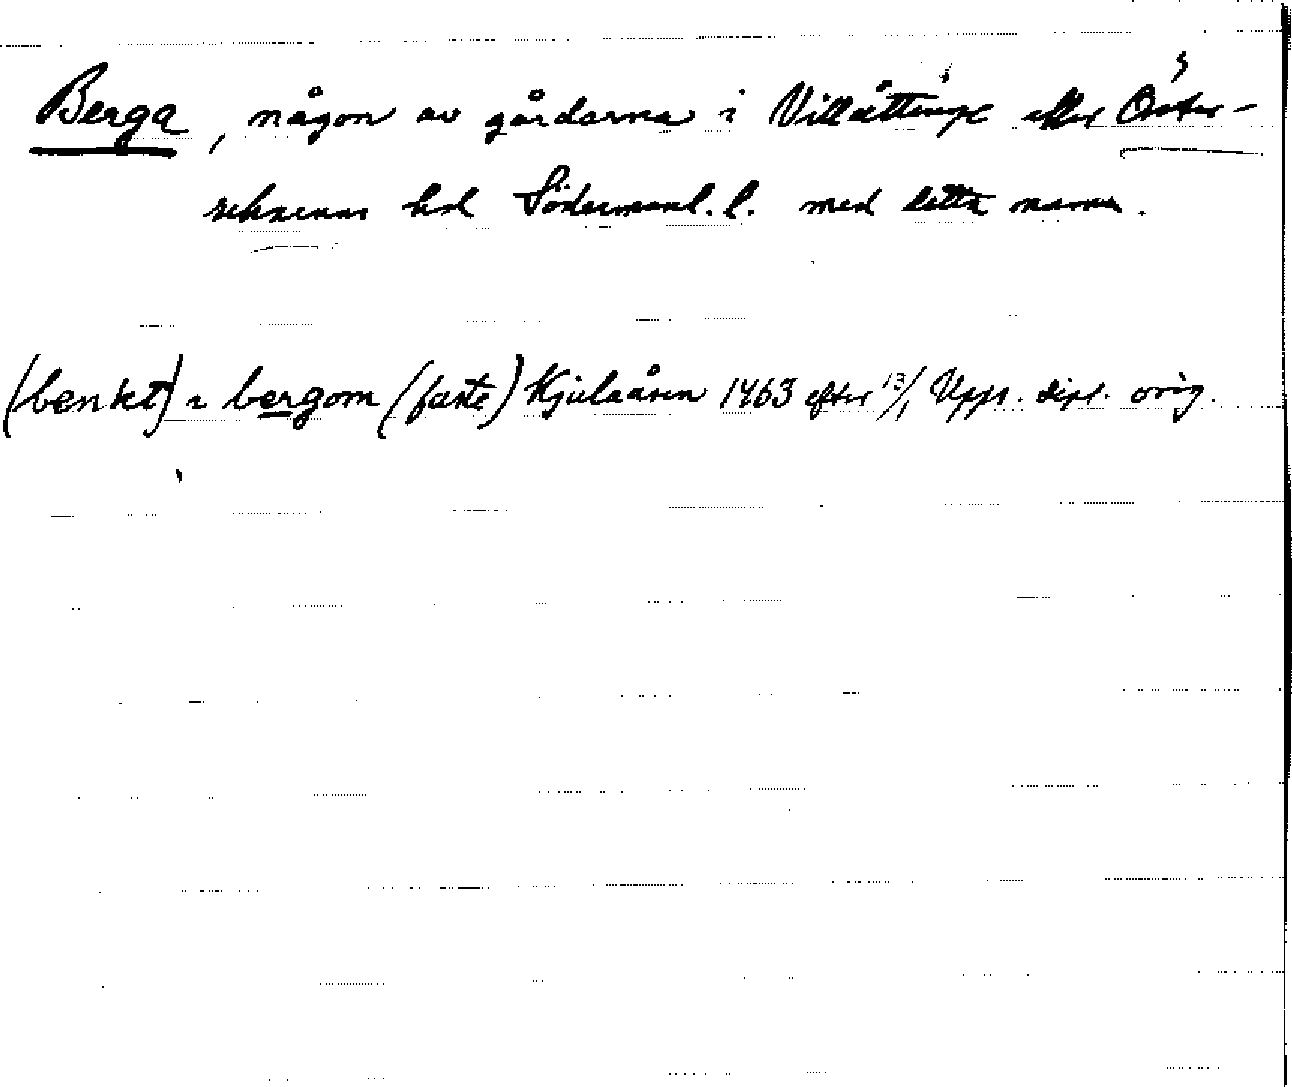 Berga, någon av gårdarna i Villåttinge eller Öster-
rekarnas hd Södermanl. l. med detta namn.
(benkt) a bergom (faste) Kjulaåsen 1463 efter 13/1 Upps. dipl. orig.